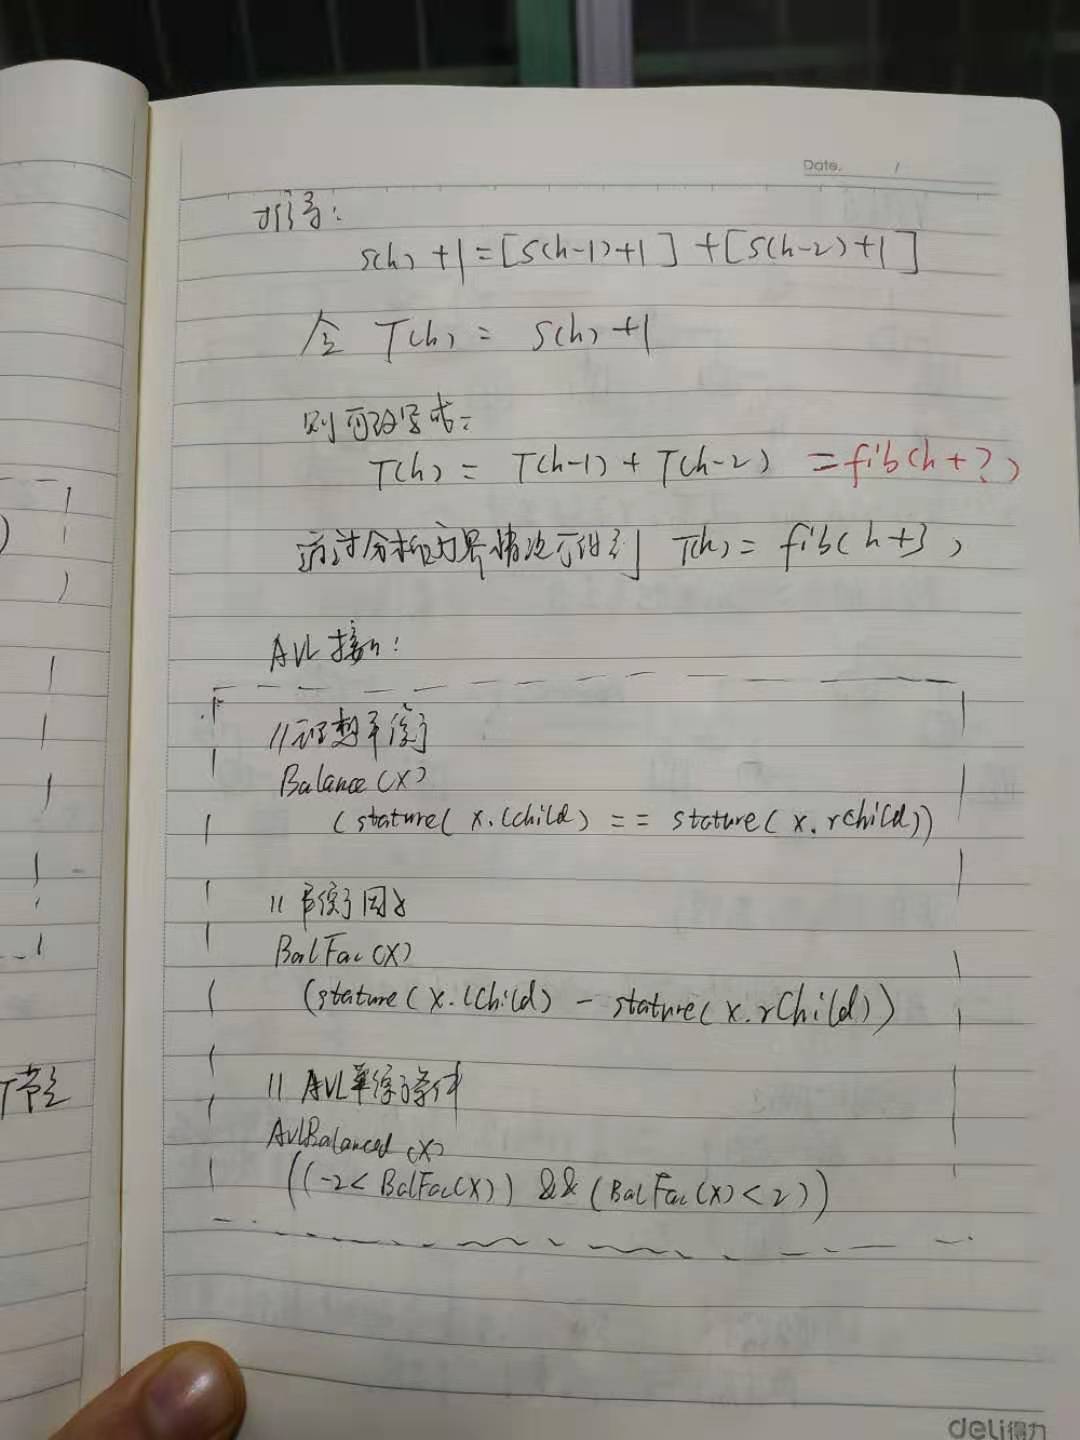 Date. /
推导:
S(h)+1=[S(h-1)+1]+[S(h-2)+1]
令 T(h) = S(h)+1
则可改写成:
T(h) = T(h-1) + T(h-2) =fib(h+?)
通过分析边界情况可得到 T(h)= fib(h+3)
AVL 接口:
//理想平衡
Balance(X)
(stature( x.lchild) == stature( x.rchild))
// 平衡因子
BalFac(X)
(stature( x.lChild) - stature( x.rChild))
// AVL平衡条件
AvlBalanced(X)
((-2< BalFac(X)) && (BalFac(X)<2))
节点
deli得力